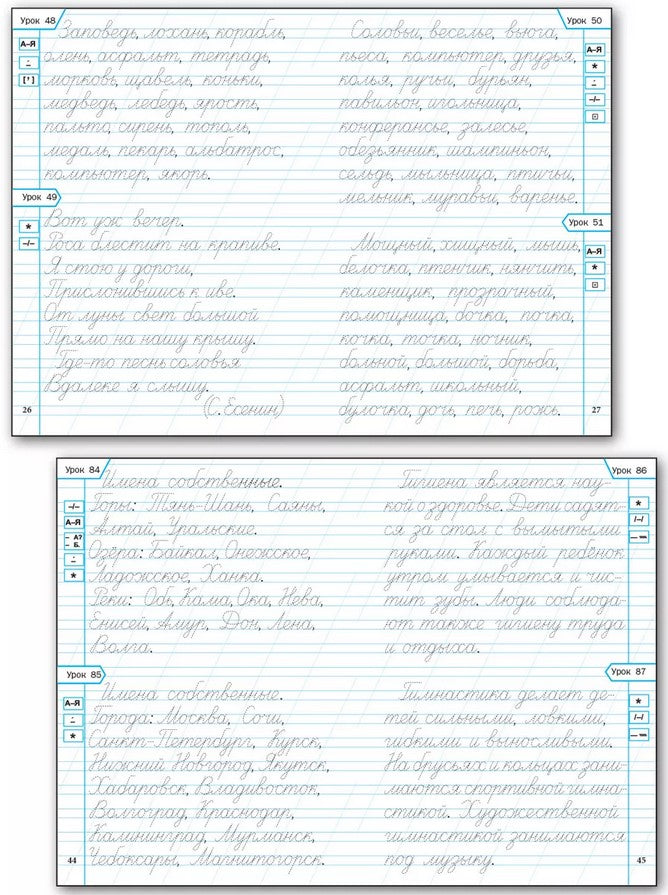 Урок 48
А-Я
[']
Заповедь, лохань, корабль,
олень, асфальт, тетрадь,
морковь, щавель, коньки,
медведь, лебедь, ярость,
пальто, сирень, тополь,
медаль, пекарь, альбатрос,
компьютер, якорь.
Урок 49
*
-/-
Вот уж вечер.
Роса блестит на крапиве.
Я стою у дороги,
Прислонившись к иве.
От луны свет большой
Прямо на нашу крышу.
Где-то песнь соловья
Вдалеке я слышу.
(С. Есенин)
26
Урок 50
А-Я
*
-/-
Соловьи, веселье, вьюга,
пьеса, компьютер, друзья,
колья, ручьи, бурьян,
павильон, игольница,
конферансье, залесье,
обезьянник, шампиньон,
сельдь, мыльница, птичьи,
мельник, муравьи, варенье.
Урок 51
А-Я
*
Мощный, хищный, мышь,
белочка, птенчик, нянчить,
каменщик, прозрачный,
помощница, бочка, почка,
кочка, точка, ночник,
больной, большой, борьба,
асфальт, школьный,
булочка, дочь, печь, рожь.
27
Урок 84
-/-
А-Я
- А?
- Б.
*
Имена собственные.
Горы: Тянь-Шань, Саяны,
Алтай, Уральские.
Озёра: Байкал, Онежское,
Ладожское, Ханка.
Реки: Обь, Кама, Ока, Нева,
Енисей, Амур, Дон, Лена,
Волга.
Урок 85
А-Я
*
Имена собственные.
Города: Москва, Сочи,
Санкт-Петербург, Курск,
Нижний Новгород, Якутск,
Хабаровск, Владивосток,
Волгоград, Краснодар,
Калининград, Мурманск,
Чебоксары, Магнитогорск.
44
Урок 86
*
/-/
Гигиена является нау-
кой о здоровье. Дети садят-
ся за стол с вымытыми
руками. Каждый ребёнок
утром умывается и чис-
тит зубы. Люди соблюда-
ют также гигиену труда
и отдыха.
Урок 87
*
/-/
Гимнастика делает де-
тей сильными, ловкими,
гибкими и выносливыми.
На брусьях и кольцах зани-
маются спортивной гимна-
стикой. Художественной
гимнастикой занимаются
под музыку.
45